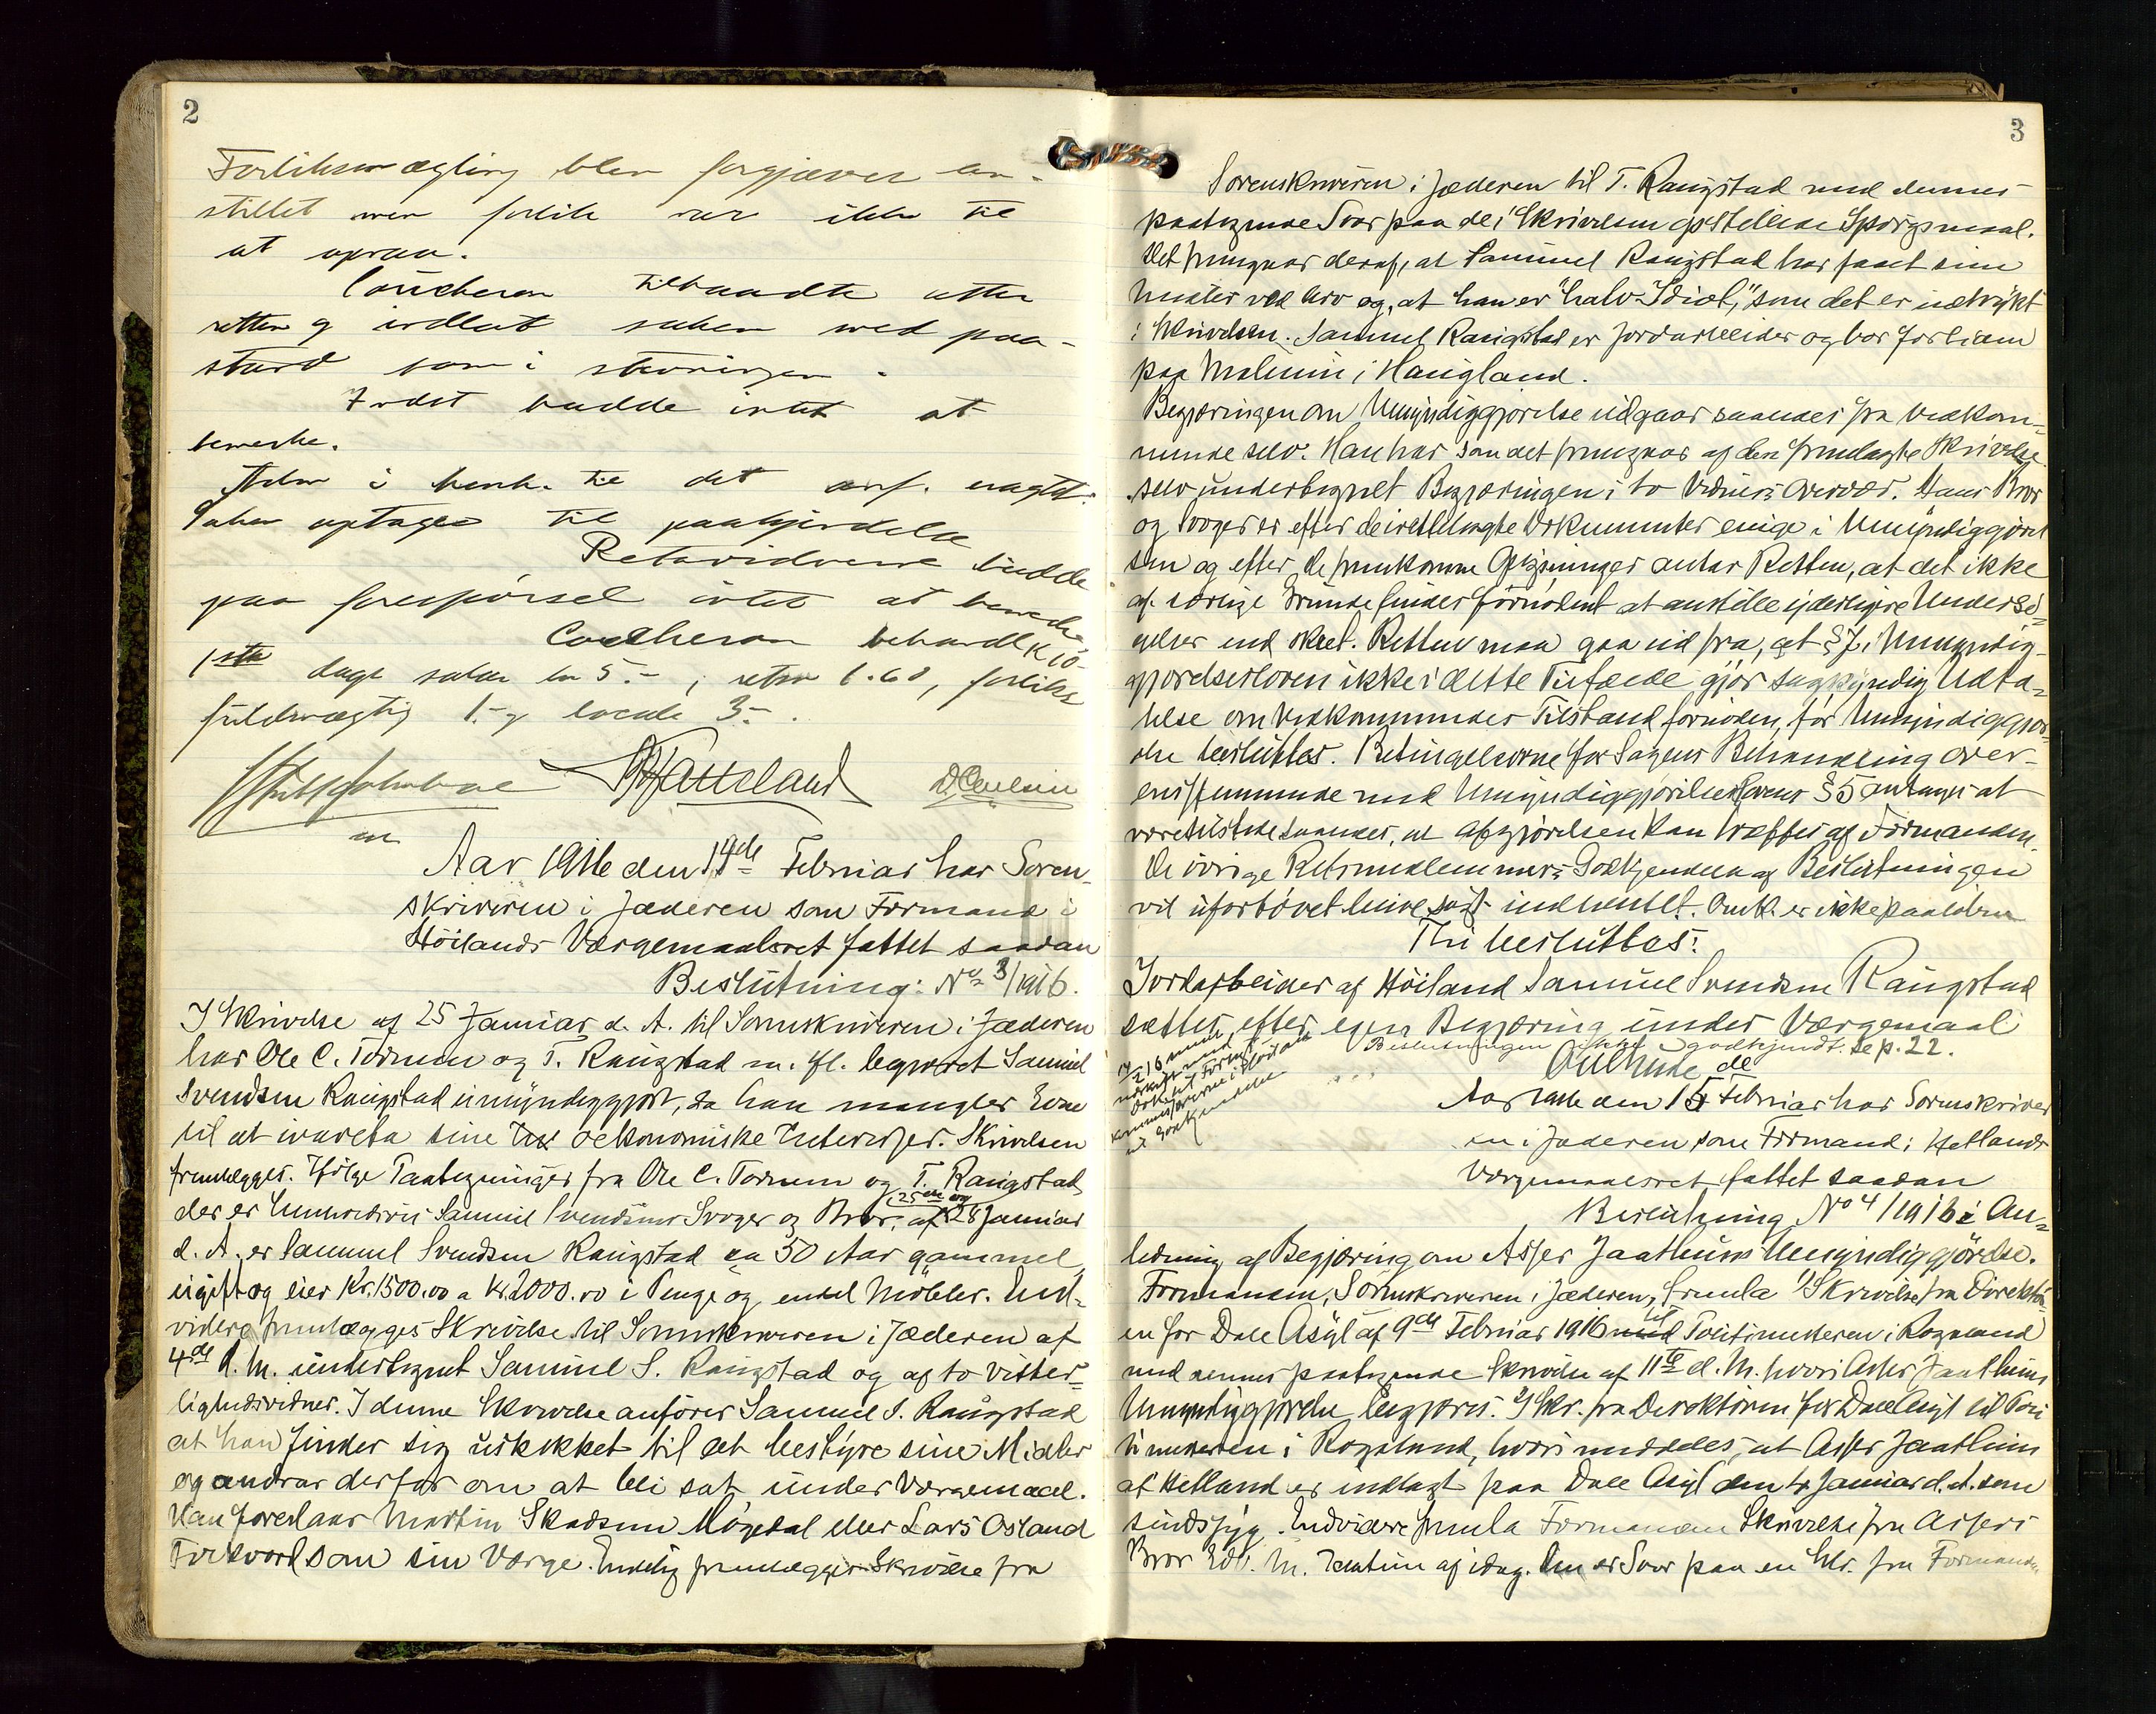 2
Forliksmægling blev forgjæves an-
stillet men forlik var ikke til
at opnaa.
Coucheron tilbaadte atter
retten og indlot saken med paa-
stand som i stevningen.
Indst hadde intet at
bemerke.
i henh. til det anf. negtet.
Saken optages til paakjendelse
Retsvidnerne hadde
paa forespørsel intet at bemerke
Coucheron behandl k 10-
1ste dags salær kr 5.-, retsv 1.60, forliks
fuldmægtig 1.- og locale 3.-.
Aar 1916 den 14de Februar har Soren-
skriveren i Jæderen som Formand i
Höilands Værgemaalsret fattet saadan
Beslutning: No 3/1916.
I Skrivelse af 25 Januar d. A. til Sorenskriveren i Jæderen
har Ole C. Torsum og T. Raugstad m. fl. begjæret Samuel
Svendsen Raugstad umyndiggjort, da han mangler Evne
til at ivareta sine oekonomiske Interesser. Skrivelsen
fremlægges. Ifölge Paategninger fra Ole C. Torsum og T. Raugstad
der er Samuel Svendsens Svoger og Bror, af 25de og 28 Januar
d. A. er Samuel Svendsen Raugstad ca 50 Aar gammel,
ugift og eier Kr. 1500.00 a Kr. 2000.00 i Penge og endel Möbler. End-
videre fremlægges Skrivelse til Sorenskriveren i Jæderen af
4de d. M. undertegnet Samuel S. Raugstad og af to Vitter-
lighedsvidner. I denne Skrivelse anförer Samuel S. Raugstad
at han finder sig uskikket til at bestyre sine Midler
og andrar derfor om at bli sat under Værgemaal.
Han foreslaar Martin Skadsem Mögedal eller Lars Osland
Forkvard som sin Værge. Endelig fremlægges Skrivelse fra
3
Sorenskriveren i Jæderen til T. Raugstad med dennes
paategnede Svar paa de i Skrivelsen opstillede Spörgsmaal.
Det fremgaar deraf, at Samuel Raugstad har faaet sine
Midler ved Arv og, at han er "halv-Idiot," som det er udtrykt
i Skrivelsen. Samuel Raugstad er Jordarbeider og bor for
paa Malmin i Haugland.
Begjæringen om Umyndiggjörelse udgaar saaledes fra Vedkom-
mende selv. Han har som det fremgaar af den fremlagte Skrivelse
selv undertegnet Begjæringen i to Vidners Overvær. Hans Bror
og Svoger er efter de iretlelagte Dokumenter enige i Umyndiggjörel
sen og efter de fremkomne Oplysninger antar Retten, at det ikke
af særlige Grunde findes fornödent at anstille yderligere Undersö-
gelser end skeet. Retten maa gaa ud fra, at § 7 i Umyndig-
gjørelsesloven ikke i dette Tilfælde gjör sagkyndig Udta-
lelse om Vedkommendes Tilstand fornöden, för Umyndiggjör-
else besluttes. Betingelserne for Sagens Behandling over-
ensstemmende med Umyndiggjörelseslovens § 5 antages at
være tilstede saaledes, at Afgjörelsen kan træffes af Formanden.
De övrige Retsmedlemmers Godkjendelse af Beslutningen
vil ufortövet blive sögt indhentet. Omk. er ikke paalöbne
Thi besluttes:
Jordarbeider af Höiland Samuel Svendsen Raugstad
sættes efter egen Begjæring under Værgemaal
Beslutningen ikke godkjendt. Se p. 22.
14/2 16 sendt
udskrift med
Dokum. t Formd
kommunestyrene i Höiland
til Godkjendelse
Aar 1916 den 15de Februar har Sorenskriver
en i Jæderen som Formand i Hetlands
Værgemaalsret fattet saadan
Beslutning No 4/1916 i An-
ledning af Begjæring om Asser Jaathuns Umyndiggjörelse.
Formanden, Sorenskriveren i Jæderen, frmla 1) Skrivelse fra Direktör
en for Dale Asyl af 9de Februar 1916 til Politimesteren i Rogaland
med dennes paategnede Skrivelse af 11te d. M. hvori Asser Jaathuns
Umyndiggjörelse begjæres. I Skr. fra Direktören for Dale Asyl til Poli
timesteren i Rogaland, hvori meddeles, at Asser Jaathun
af Hetland er indlagt paa Dale Asyl den 4 Januar d. A. som
sindssyg. Endvidere frmla Formanden Skrivelse fra Assers
Bror Edv. M. Jaatun af idag. Den er Svar paa en Skr. fra Formanden